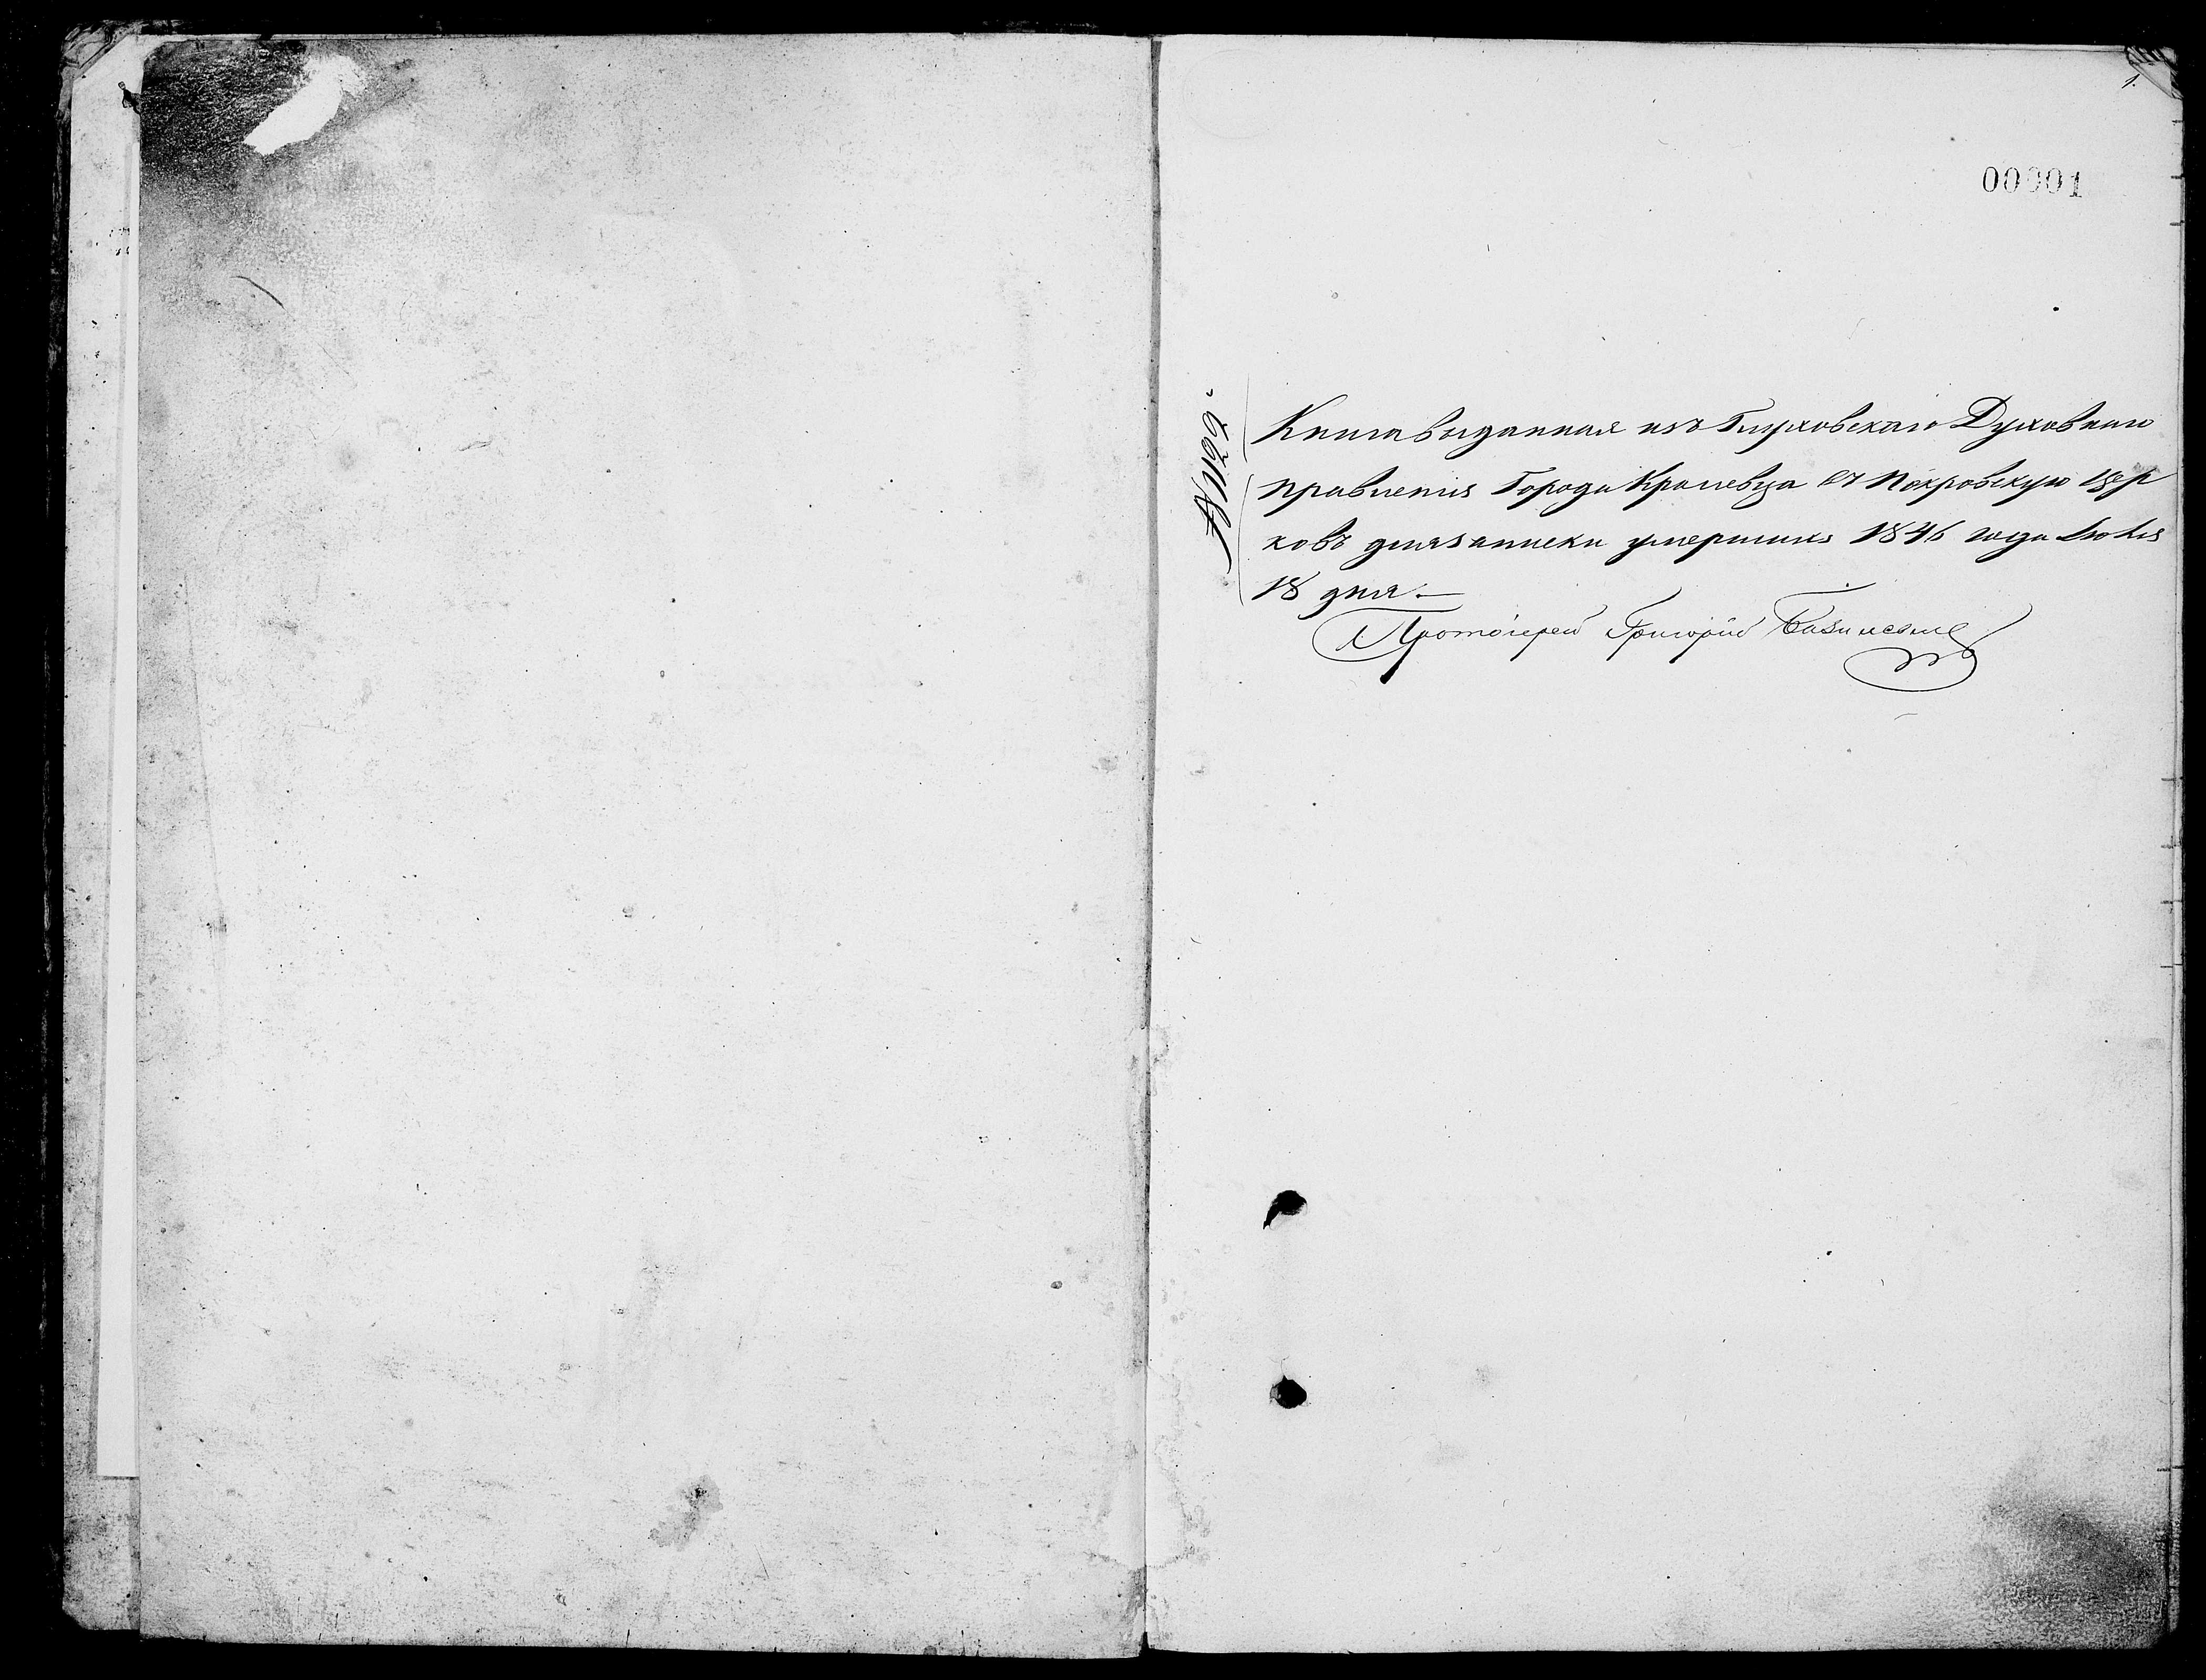 1.
00001
№ 1299.
Книга выданная изъ Глуховскаго Духовнаго
правленія Города Кролевца въ Покровскую Цер
ковъ для записки умершихъ 1846 года Іюля
18 дня.—
Протоіерей Григорій